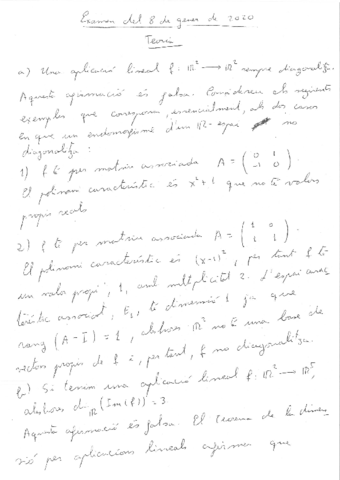 Examen del 8 de gener de 2020
Teoria
a) Una aplicació lineal f: ℝ² → ℝ² sempre diagonalitza.
Aquesta afirmació és falsa. Considerem els següents
exemples que corresponen, essencialment, als dos casos
en que un endomorfisme d'un ℝ-espai no
diagonalitza:
1) f té per matriu associada A = ( 0 1 ; -1 0 ).
El polinomi característic és x²+1 que no té valors
propis reals.
2) f té per matriu associada A = ( 1 0 ; 1 1 ).
El polinomi característic és (x-1)², per tant f té
un valor propi, 1, amb multiplicitat 2. L'espai carac-
terístic associat, E₁, té dimensió 1 ja que
rang (A-I) = 1, aleshores ℝ² no té una base de
vectors propis de f i, per tant, f no diagonalitza.
b) Si tenim una aplicació lineal f: ℝ² → ℝ⁵,
aleshores dim_ℝ (Im(f)) = 3
Aquesta afirmació és falsa. El Teorema de la dimen-
sió per aplicacions lineals afirma que